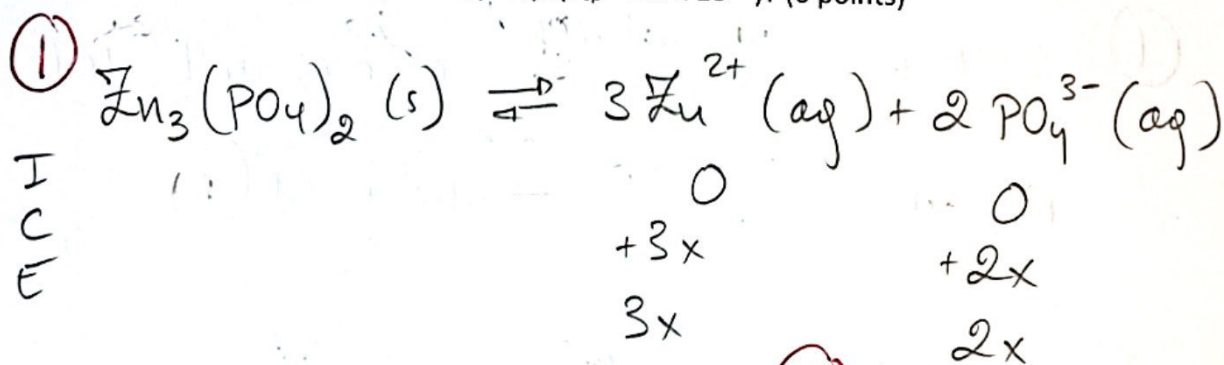 points)
① Zn₃(PO₄)₂ (s) ⇌ 3 Zn²⁺ (aq) + 2 PO₄³⁻ (aq)
I 0 0
C +3x +2x
E 3x 2x